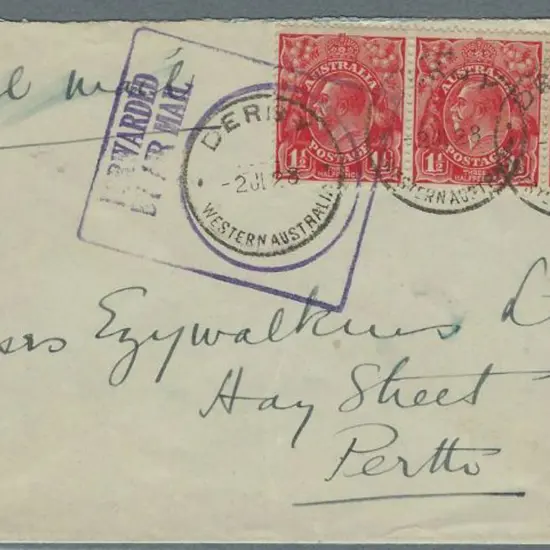 l mail
FORWARDED
BY AIR MAIL
DERBY
-2 JL 28
WESTERN AUSTRALIA
AUSTRALIA
1½ 1½
POSTAGE
THREE HALFPENCE
AUSTRALIA
1½
POSTAGE
THREE
HALFPENCE
28
WESTERN AUSTR
sers Ezywalkins L
Hay Street
Perth